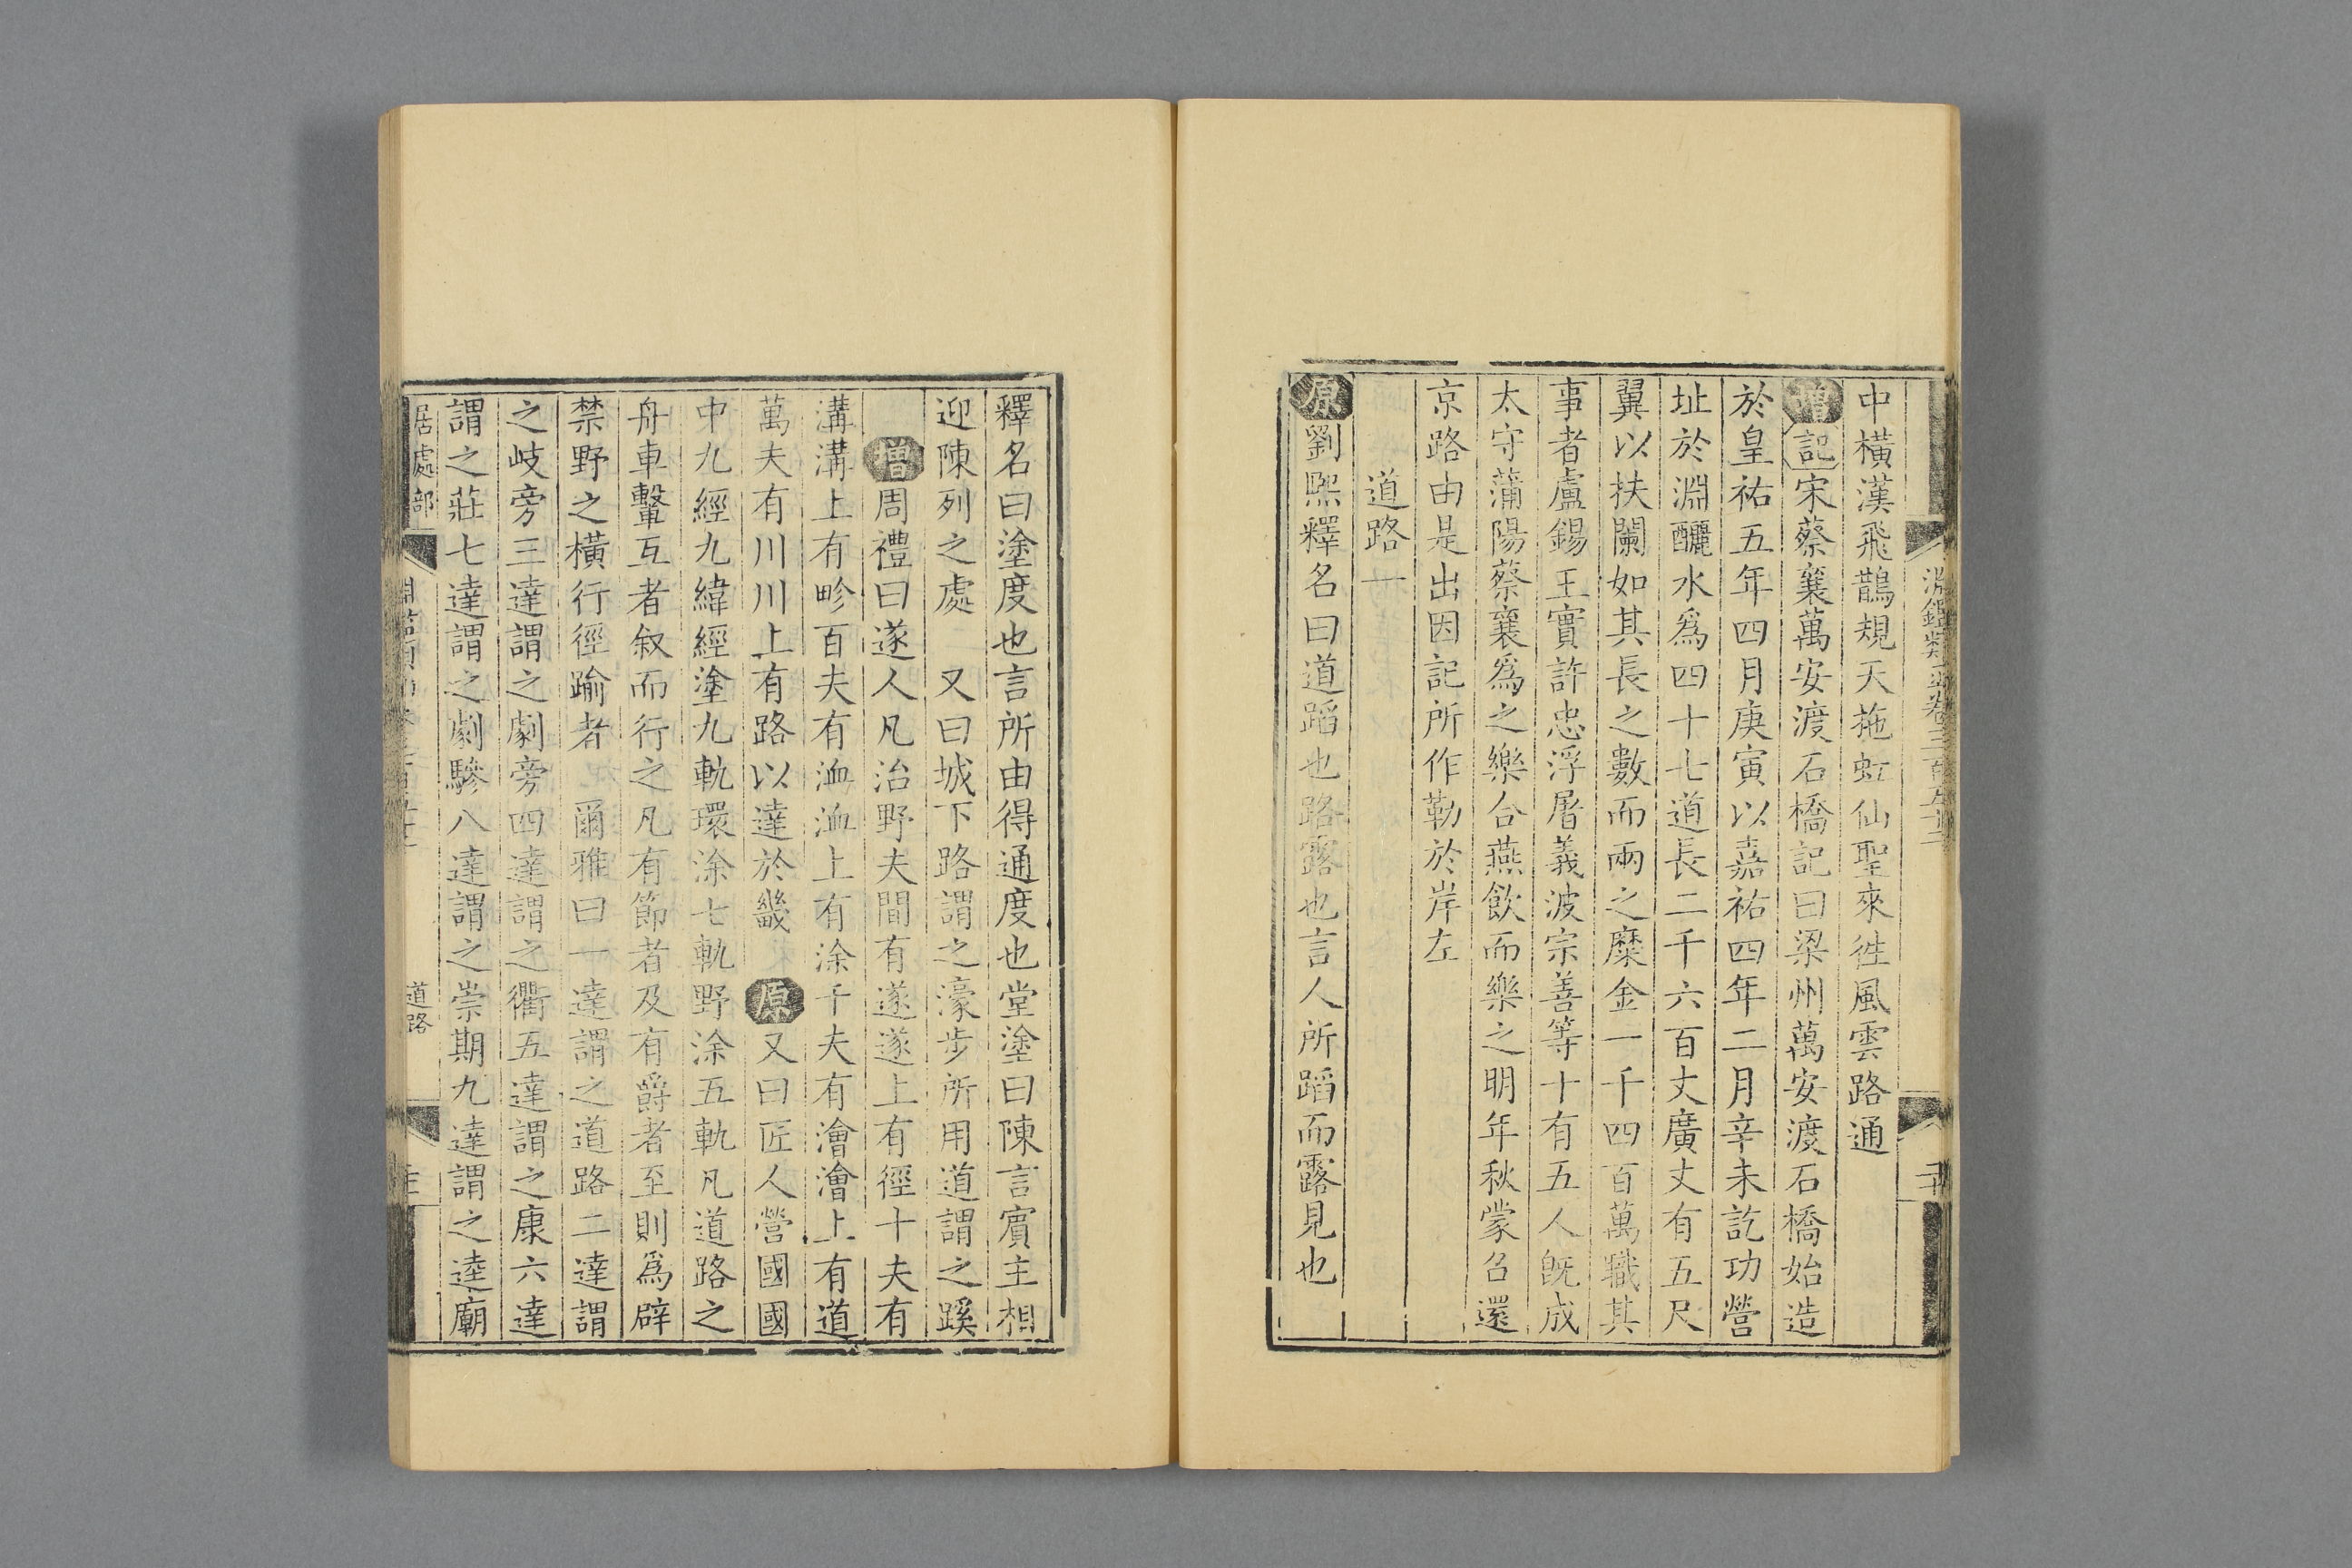 淵鑑類函卷三百五十
二十
中橫漢飛鵲規天拖虹仙聖來徃風雲路通
增記宋蔡襄萬安渡石橋記曰梁州萬安渡石橋始造
於皇祐五年四月庚寅以嘉祐四年二月辛未訖功營
址於淵釃水爲四十七道長二千六百丈廣丈有五尺
翼以扶闌如其長之數而兩之糜金一千四百萬職其
事者盧錫王實許忠浮屠義波宗善等十有五人旣成
太守蒲陽蔡襄爲之樂合燕飲而樂之明年秋蒙召還
京路由是出因記所作勒於岸左
道路一
原劉熙釋名曰道蹈也路露也言人所蹈而露見也
釋名曰塗度也言所由得通度也堂塗曰陳言賓主相
迎陳列之處 又曰城下路謂之濠步所用道謂之蹊
增周禮曰遂人凡治野夫間有遂遂上有徑十夫有
溝溝上有畛百夫有洫洫上有涂千夫有澮澮上有道
萬夫有川川上有路以達於畿 原又曰匠人營國國
中九經九緯經塗九軌環涂七軌野涂五軌凡道路之
舟車轚互者叙而行之凡有節者及有爵者至則爲辟
禁野之橫行徑踰者 爾雅曰一達謂之道路二達謂
之岐旁三達謂之劇旁四達謂之衢五達謂之康六達
謂之莊七達謂之劇驂八達謂之崇期九達謂之逵廟
居處部
道路